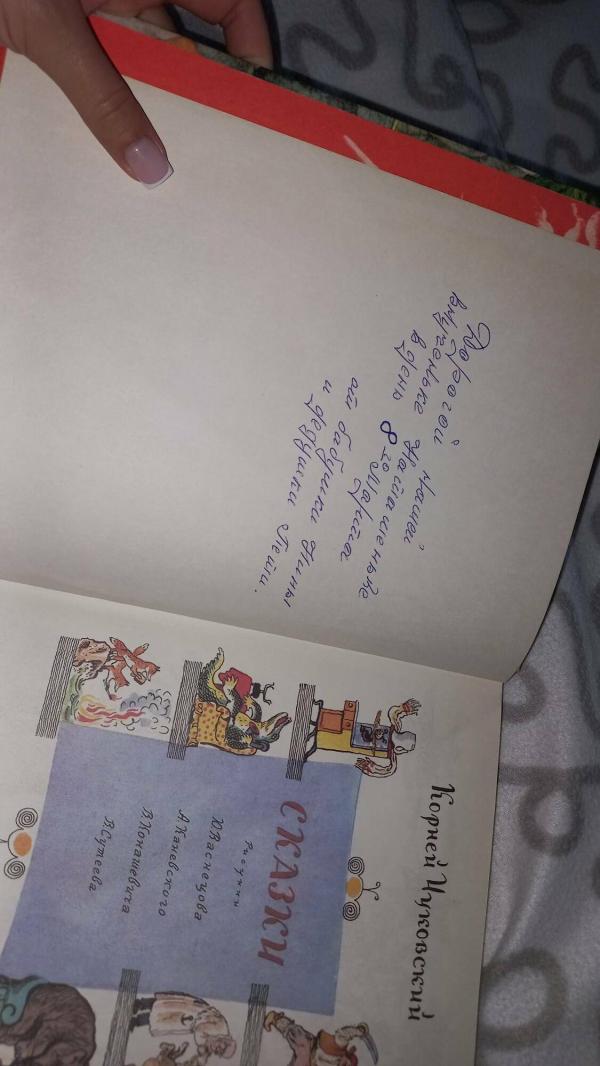 Дорогой нашей
внученьке Наташеньке
в день 8го Марта
от бабушки Нины
и дедушки Пети.
Корней Чуковский
СКАЗКИ
Рисунки
Ю.Васнецова
А.Каневского
В.Конашевича
В.Сутеева